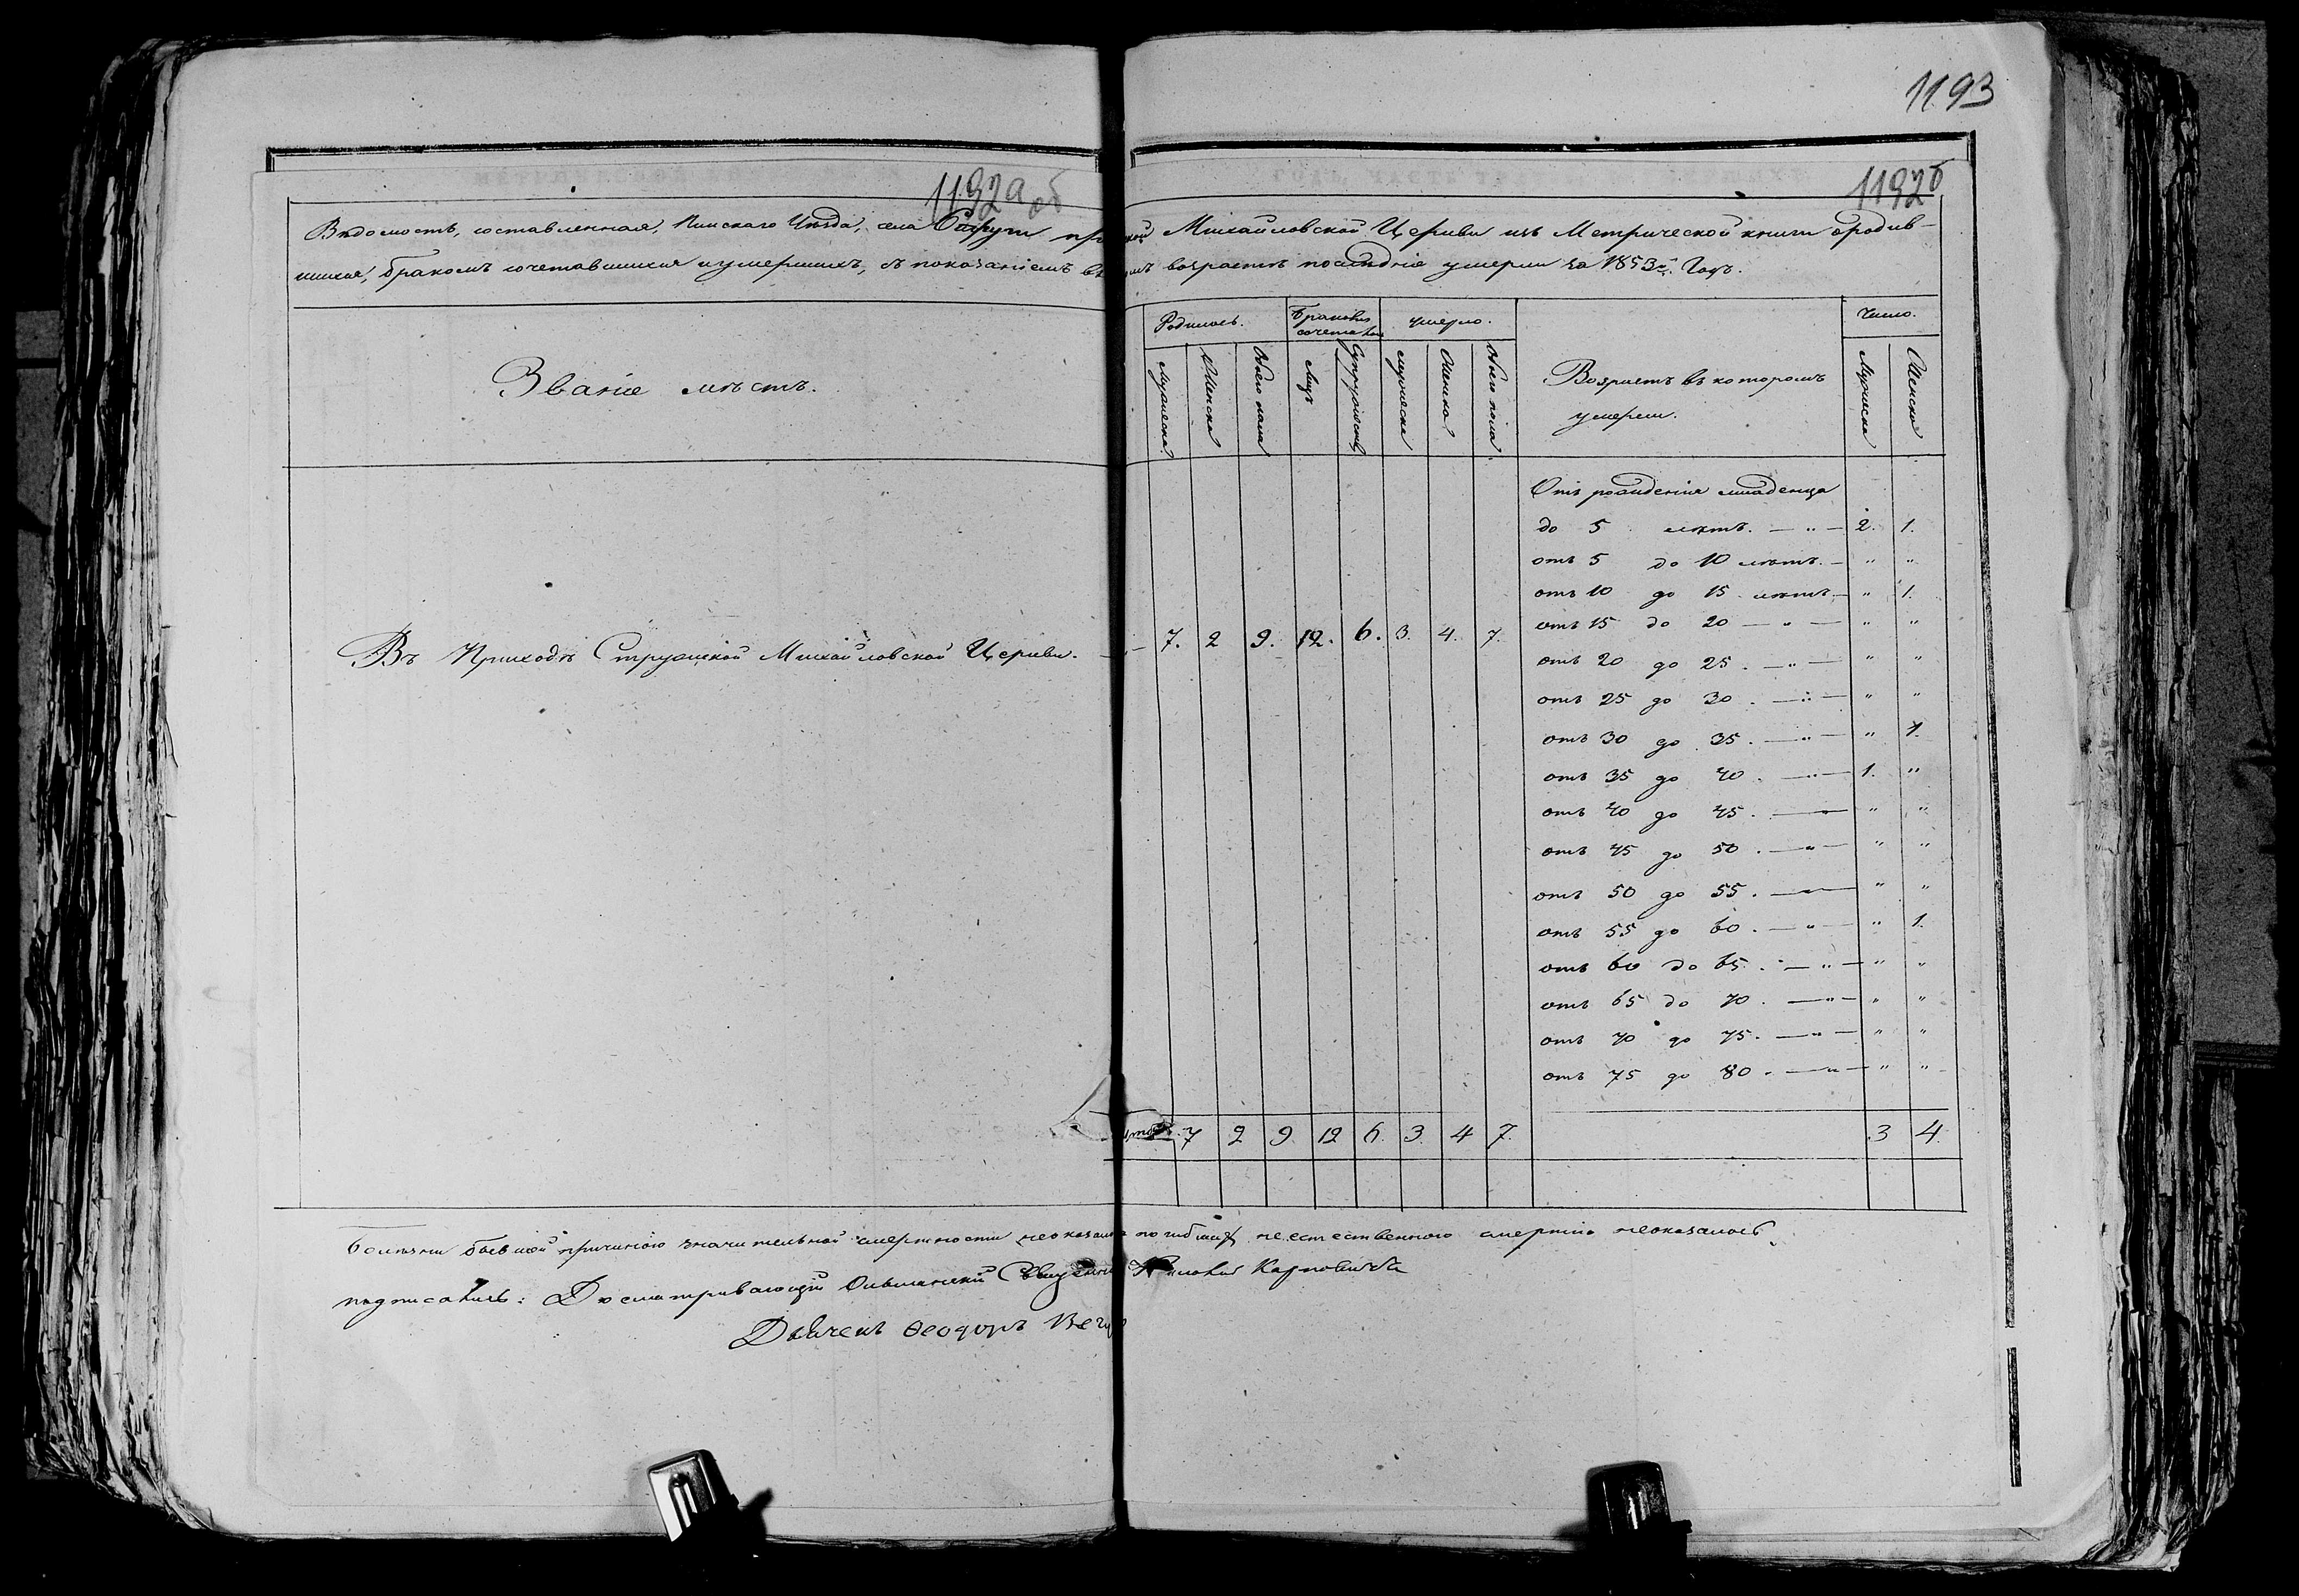 1193
1192а об
1192б
Вѣдомость, составленная, Пинскаго Уѣзда, села Струги Михайловской Церкви изъ Метрической книги о родив-
шихся, бракомъ сочетавшихся и умершихъ, съ показаніемъ въ возрастѣ послѣдніе умерли за 1853й Годъ.
Званіе мѣстъ.
Родилось.
Бракомъ сочетавш
умерло.
Возрастъ въ которомъ
умерли.
Число.
Мужеска
Женска
Обоего пола
Лицъ
Супружествъ
мужеска
Женска
Обоего пола
Мужеска
Женска
Отъ рожденія младенца
до 5 лѣтъ. — „ — 2. 1.
отъ 5 до 10 лѣтъ. — „ „
отъ 10 до 15 лѣтъ — „ 1.
отъ 15 до 20 — „ — „ „
Въ Приходѣ Стружской Михайловской Церкви. — 7. 2 9. 12. 6. 3. 4. 7.
отъ 20 до 25. — „ — „ „
отъ 25 до 30. — „ — „ „
отъ 30 до 35. — „ — „ 1.
отъ 35 до 40. — „ — 1. „
отъ 40 до 45. — „ — „ „
отъ 45 до 50. — „ — „ „
отъ 50 до 55. — „ — „ „
отъ 55 до 60. — „ — „ 1.
отъ 60 до 65. — „ — „ „
отъ 65 до 70. — „ — „ „
отъ 70 до 75. — „ — „ „
отъ 75 до 80. — „ — „ „
7 2 9 12 6. 3. 4 7. 3 4.
Болѣзни бывшей причиною значительной смертности неоказалось погибших неестественною смертію неоказалось.
подписались: Досматривающій Ольшанскій Священникъ Карповичъ
Дьячекъ Ѳеодоръ